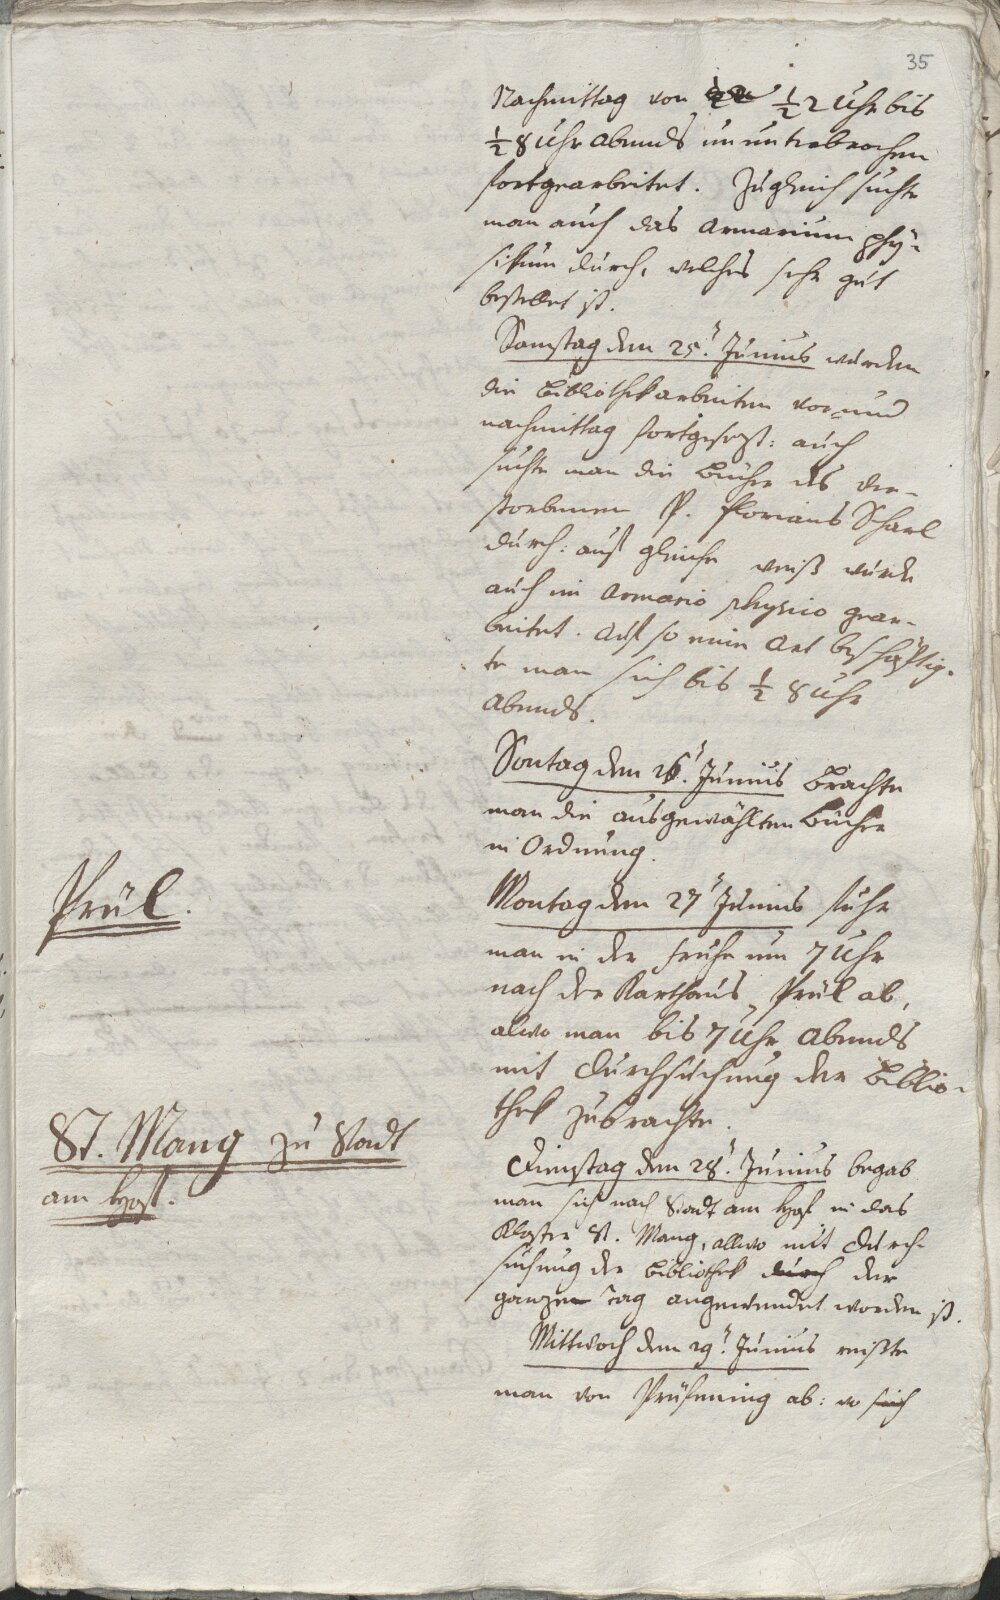 35
Nachmittag von ½2 Uhr bis
½ 8 Uhr Abends ununterbrochen
fortgearbeitet. Zugleich suchte
man auch das Armarium phÿ-
sikum durch, welches sehr gut
bestellet ist.
Samstag den 25.t Junius wurden
die Bibliothekarbeiten vor- und
nachmittag fortgesezt: auch
suchte man die Bücher des ver-
storbenen P. Florians Scharl
durch: auf gleiche weiß wurde
auch im Armario Physico gear-
beitet. Auf so eine Art beschäftig-
te man sich bis ½ 8 Uhr
Abends.
Sontag den 26.t Junius brachte
man die ausgewählten Bücher
in Ordnung.
Prül.
Montag den 27t Junius fuhr
man in der Frühe um 7 Uhr
nach der Karthaus Prül ab,
alwo man bis 7 Uhr Abends
mit Durchsuchung der Biblio-
thek zubrachte.
St. Mang zu Stadt
am Hof.
Dienstag den 28.t Junius begab
man sich nach Stadt am Hof in das
Kloster St. Mang, allwo mit Durch-
suchung der Bibliothek durch der
ganze Tag angewendet worden ist.
Mittwoch den 29.t Junius reißte
man von Prüfening ab: wo sich